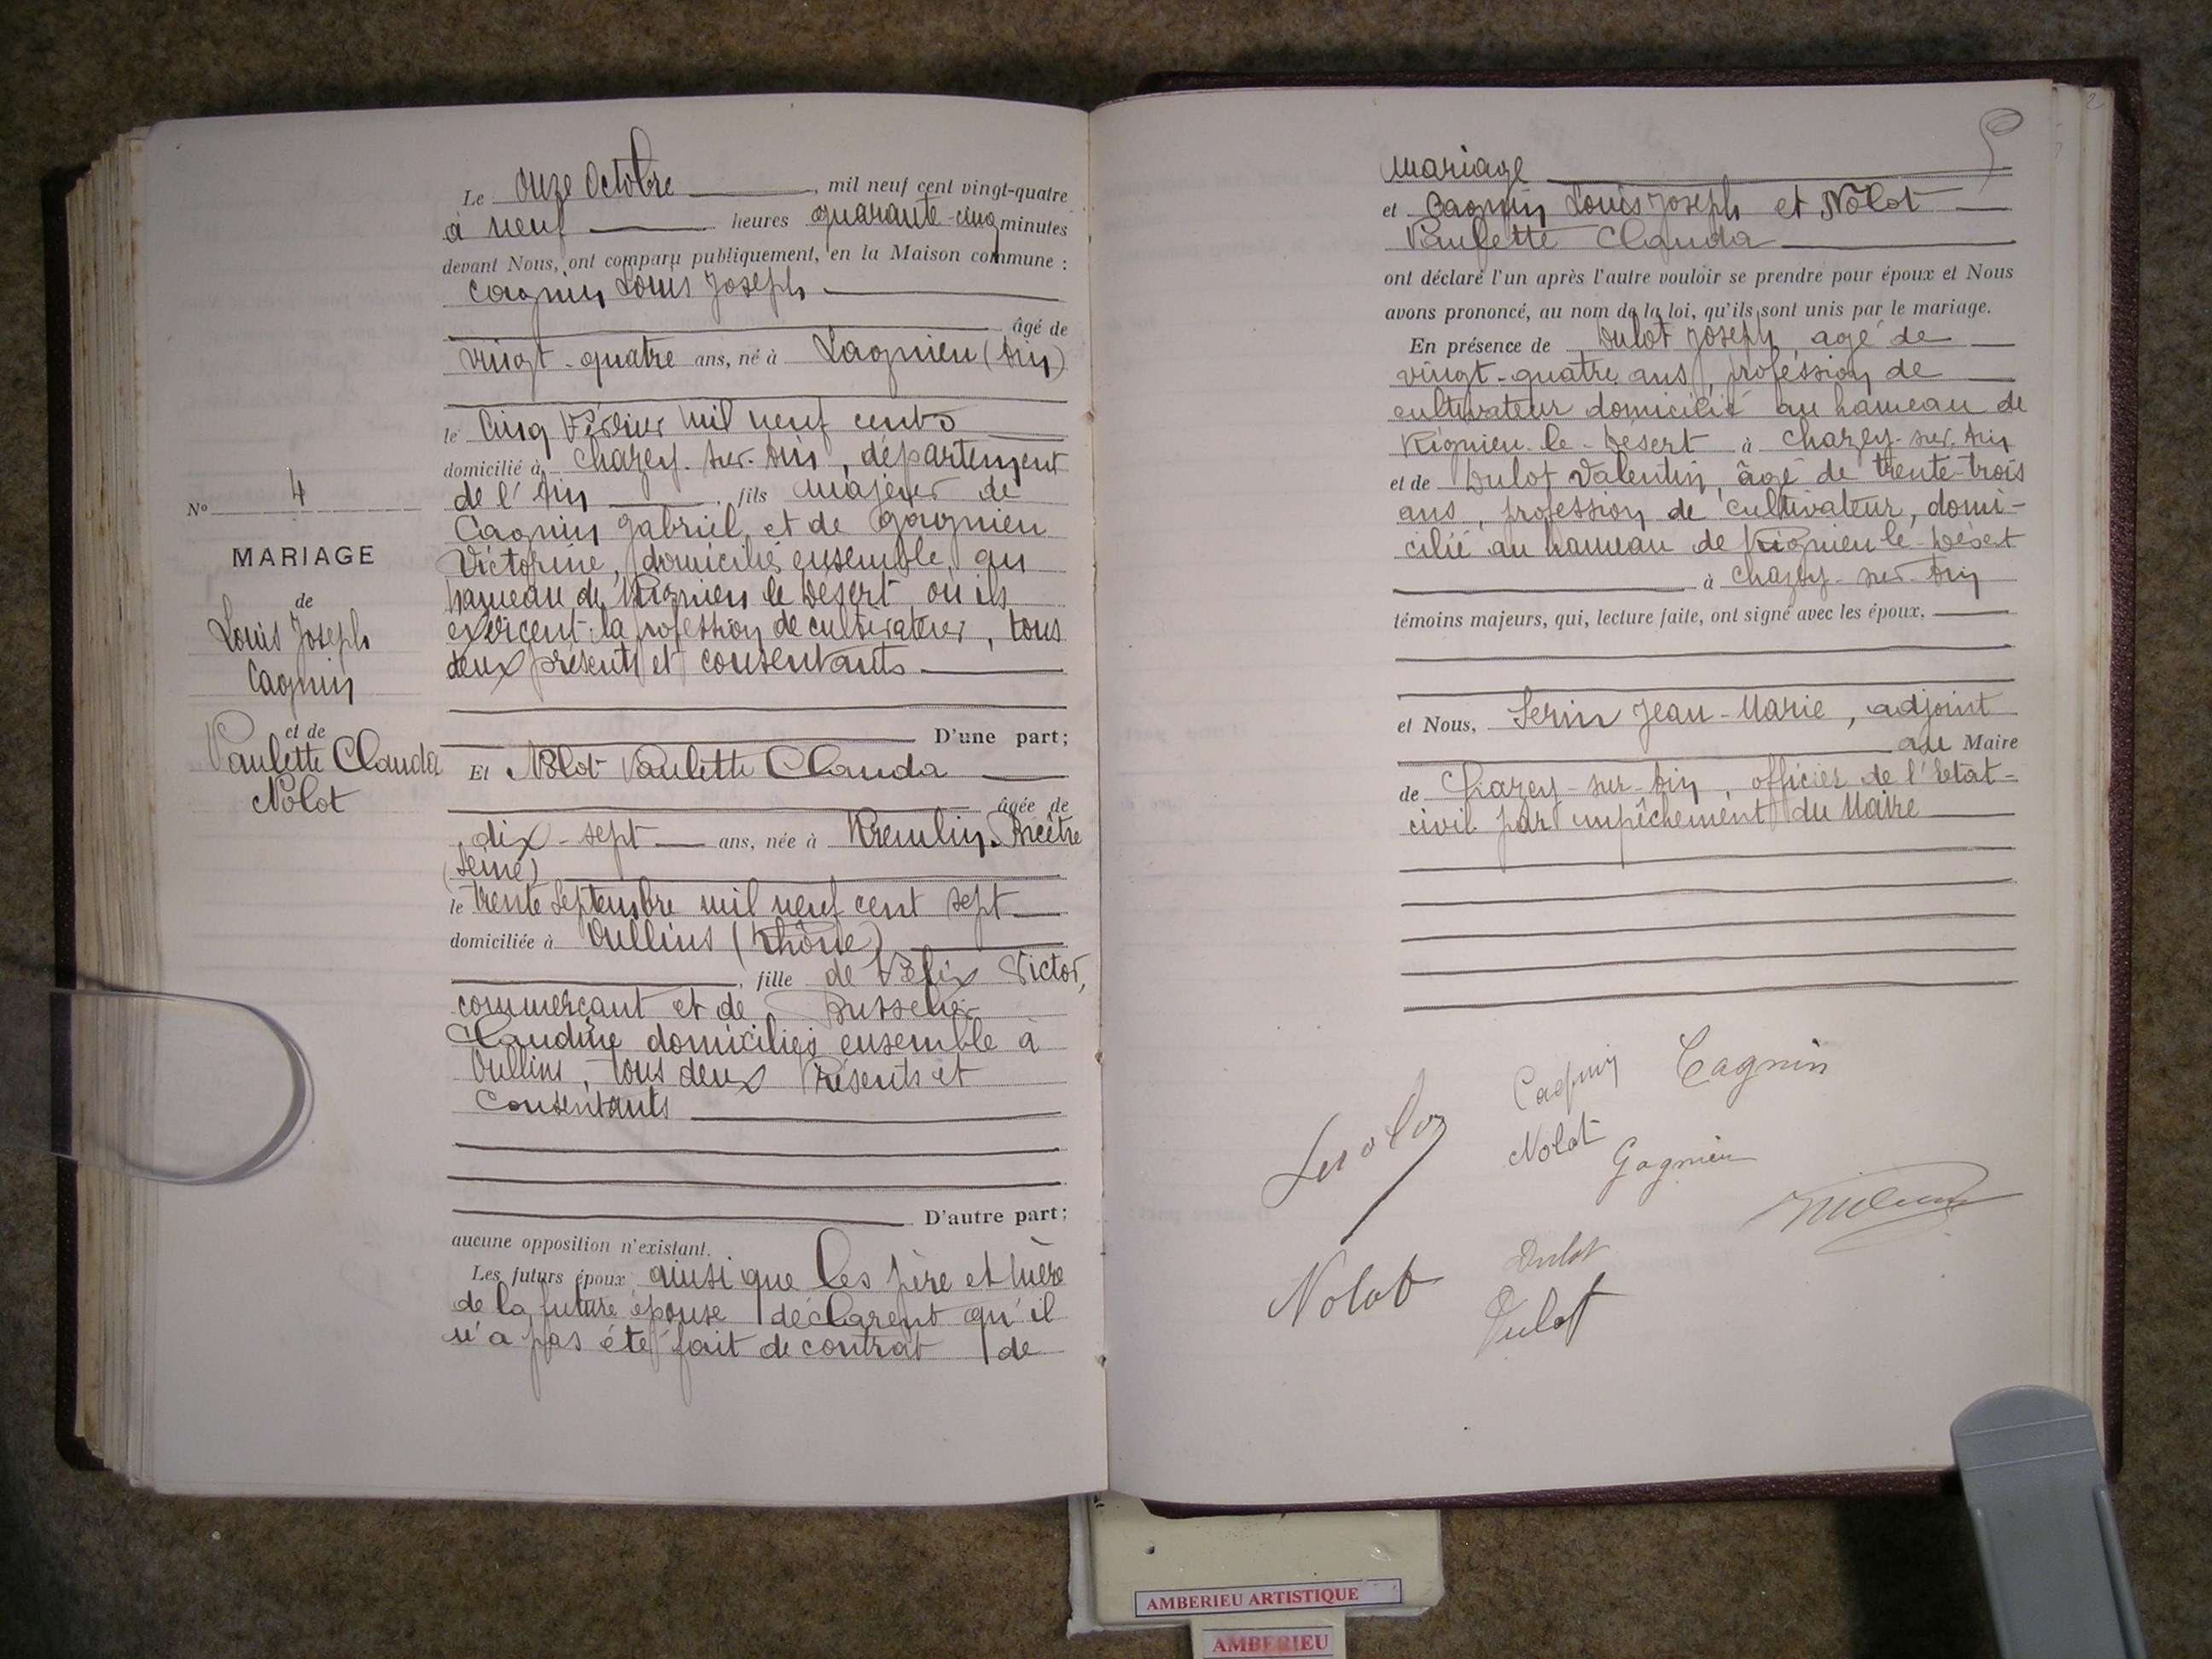 N° 4
MARIAGE
de
Louis Joseph
Cagnin
et de
Paulette Clauda
Nolot
Le onze Octobre, mil neuf cent vingt-quatre
à neuf heures quarante-cinq minutes
devant Nous, ont comparu publiquement, en la Maison commune :
Cagnin Louis Joseph
âgé de
vingt-quatre ans, né à Lagnieu (Ain)
le cinq Février mil neuf cents
domicilié à Chazey-sur-Ain, département
de l'Ain, fils majeur de
Cagnin Gabriel et de Gagnieu
Victorine, domiciliés ensemble au
hameau de Rignieu le Désert où ils
exercent la profession de cultivateur, tous
deux présents et consentants
D'une part;
Et Nolot Paulette Clauda
âgée de
dix-sept ans, née à Kremlin-Bicêtre
(Seine)
le trente Septembre mil neuf cent sept
domiciliée à Oullins (Rhône)
, fille de Félix Victor,
commerçant et de
Claudine domiciliés ensemble à
Oullins, tous deux Présents et
Consentants
D'autre part;
aucune opposition n'existant.
Les futurs époux ainsi que les père et mère
de la future épouse déclarent qu'il
n'a pas été fait de contrat de
mariage
et Cagnin Louis Joseph et Nolot
Paulette Clauda
ont déclaré l'un après l'autre vouloir se prendre pour époux et Nous
avons prononcé, au nom de la loi, qu'ils sont unis par le mariage.
En présence de Dulot Joseph, agé de
vingt-quatre ans, profession de
cultivateur domicilié au hameau de
Rignieu-le-Désert à Chazey-sur-Ain
et de Dulot Valentin, âgé de trente-trois
ans, profession de cultivateur, domi-
cilié au hameau de Rignieu-le-Désert
à Chazey-sur-Ain
témoins majeurs, qui, lecture faite, ont signé avec les époux.
et Nous, Serin Jean-Marie, adjoint
au Maire
de Chazey-sur-Ain, officier de l'état-
civil par empêchement du Maire
Cagnin Cagnin
Nolot Gagnieu
Nolot Dulot
Dulot
AMBERIEU ARTISTIQUE
AMBERIEU